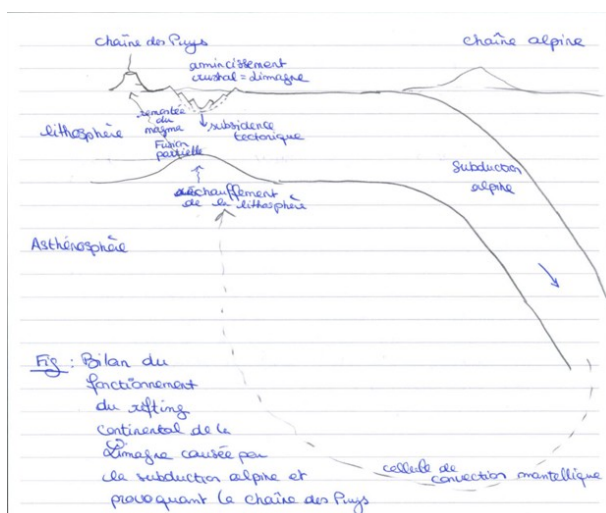 chaîne des Puys
amincissement
crustal = Limagne
chaîne alpine
remontée
du
magma
lithosphère
subsidence
tectonique
Fusion
partielle
Subduction
alpine
réchauffement
de la lithosphère
Asthénosphère
Fig : Bilan du
fonctionnement
du rifting
continental de la
Limagne causée par
la subduction alpine et
provoquant la chaîne des Puys
cellule de
convection mantellique